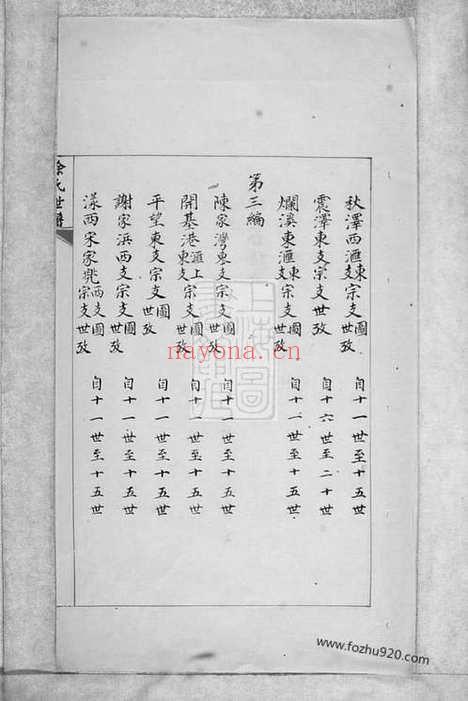 秋澤西滙東支宗支圖世攷 自十一世至十五世
震澤東支宗支世攷 自十六世至二十世
爛溪東滙東支宗支圖世攷 自十一世至十五世
第三編
陳家灣東支宗支圖世攷 自十一世至十五世
開基港滙上東支宗支圖世攷 自十一世至十五世
平望東支宗支圖世攷 自十一世至十五世
謝家浜西支宗支圖世攷 自十一世至十五世
漾西宋家兠西支宗支圖世攷 自十一世至十五世
徐氏世譜
nayona.cn
www.fozhu920.com